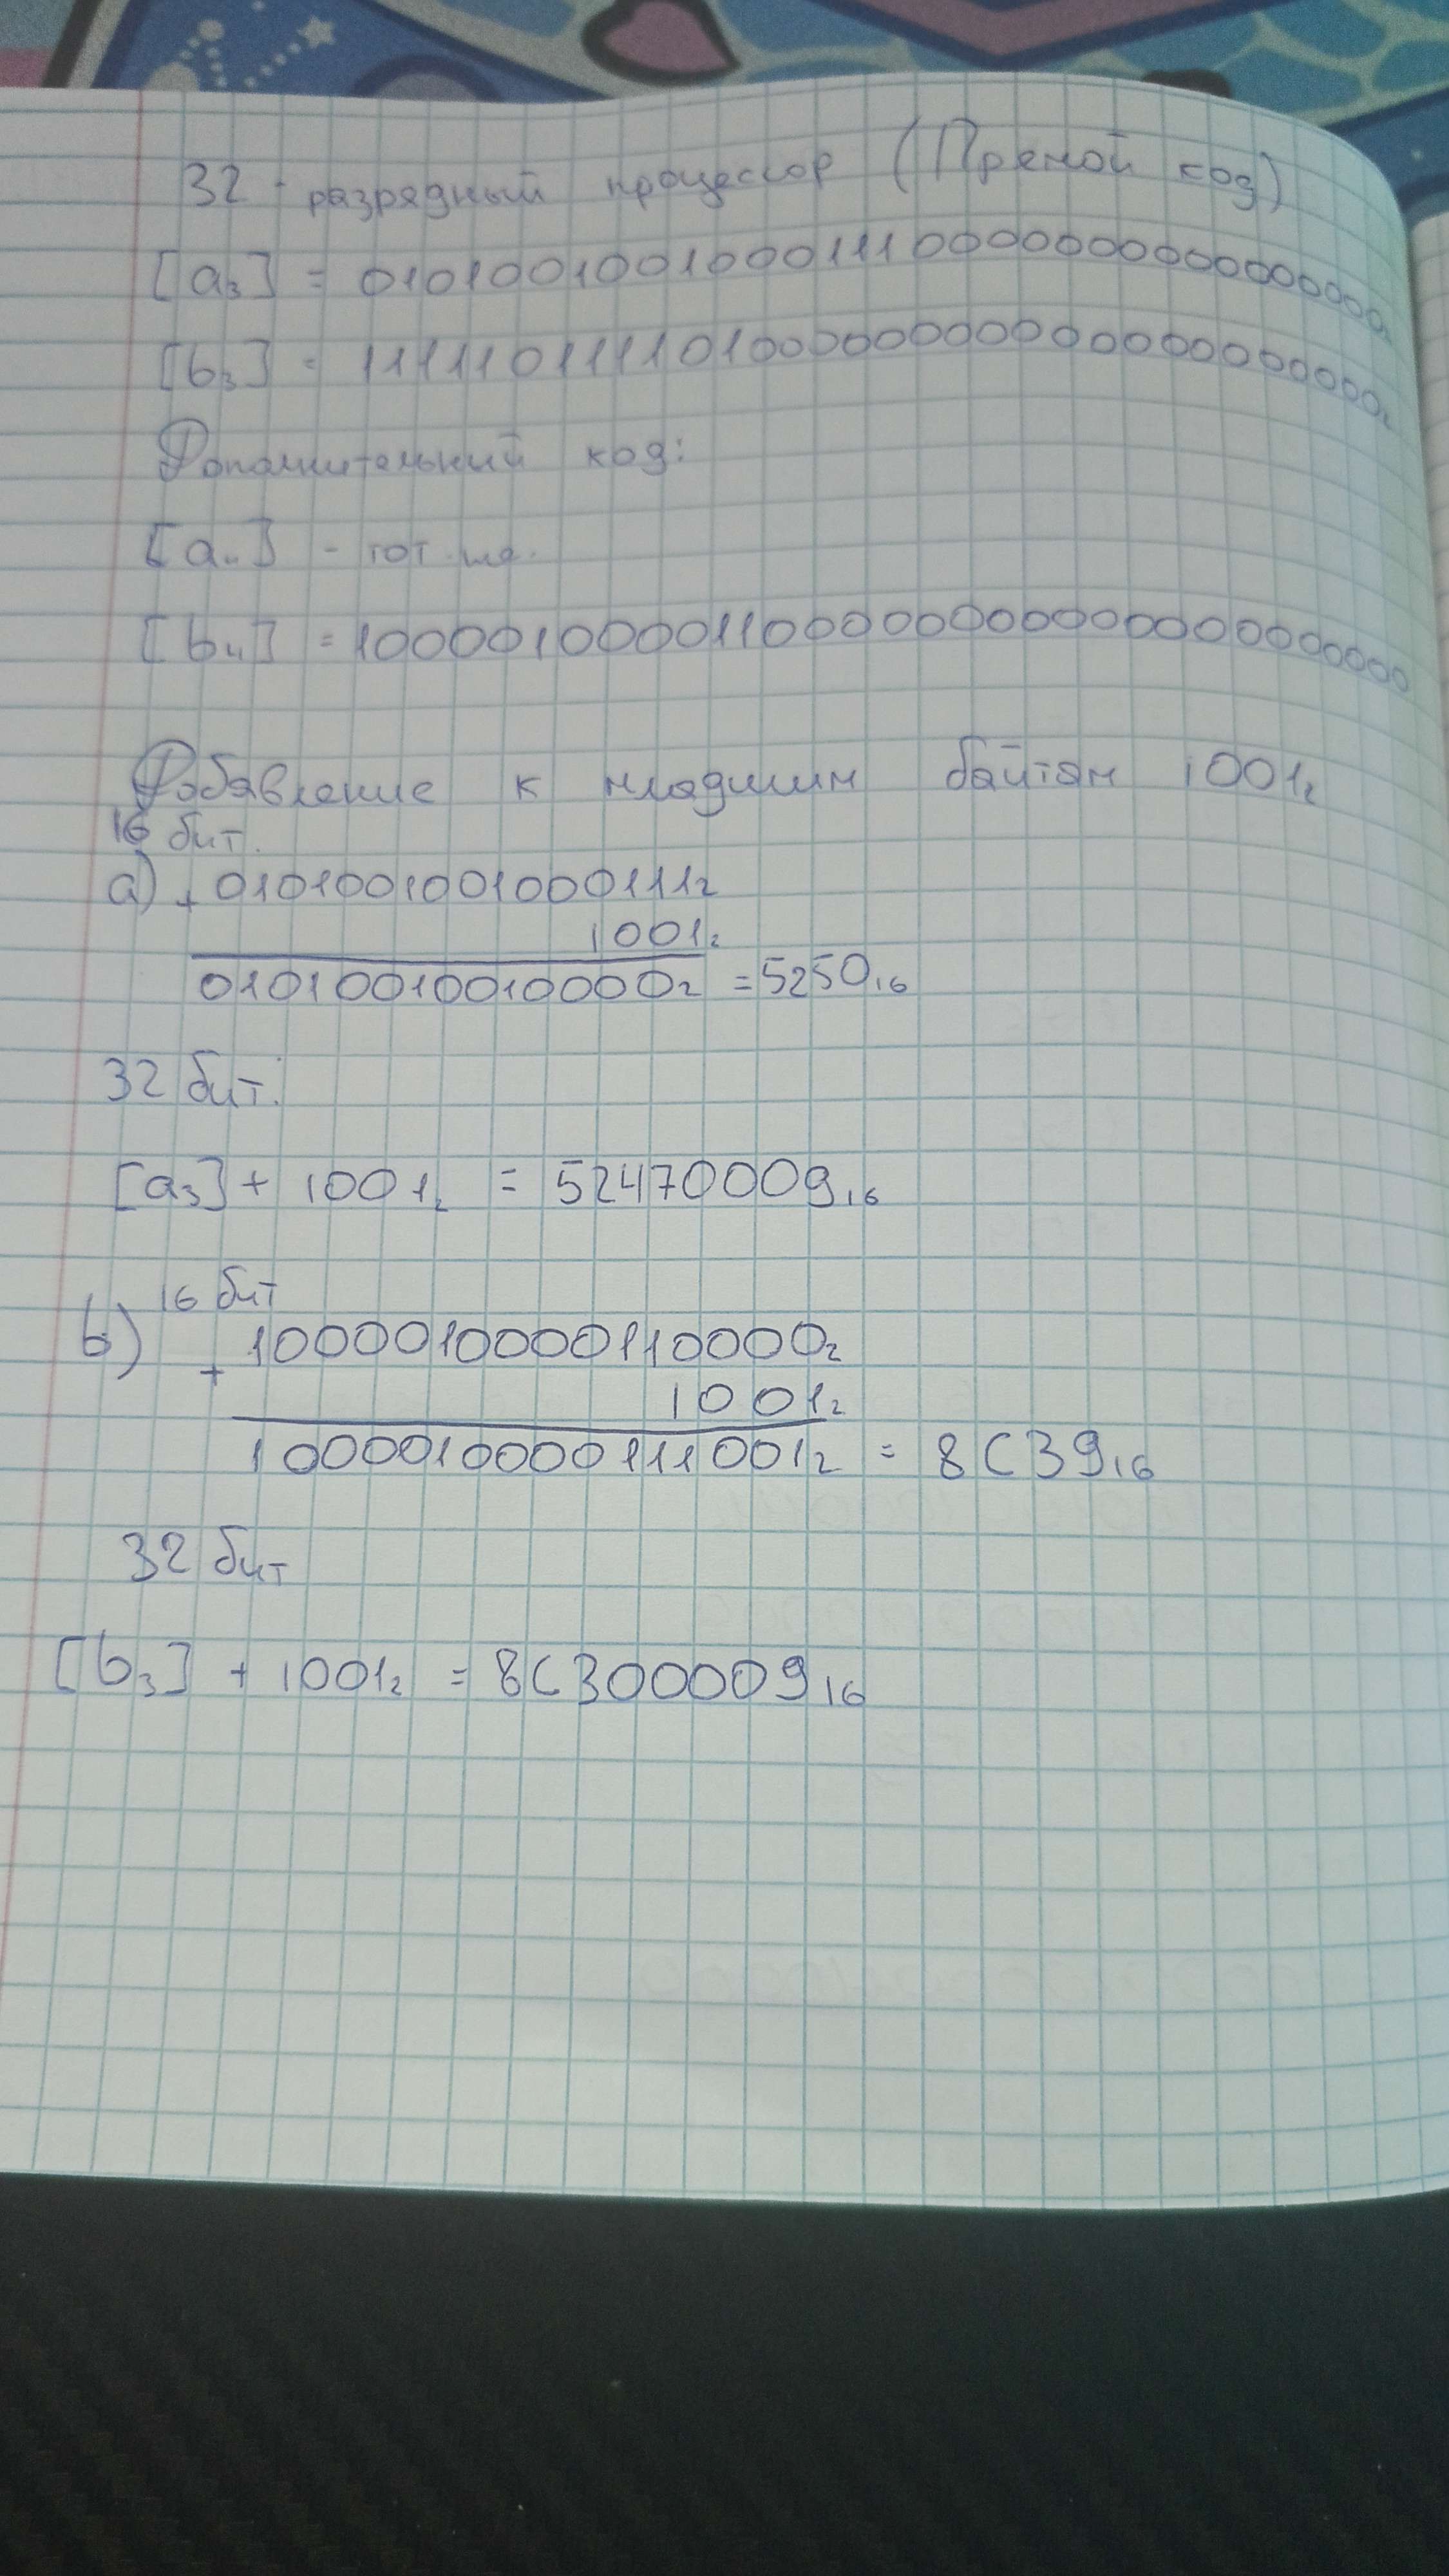 32-разрядный процессор (Прямой код)
[a₃] = 01010010010001110000000000000000₂
[b₃] = 11111011110100000000000000000000₂
Дополнительный код:
[a₄] - тот же.
[b₄] = 10000100001100000000000000000000
Добавление к младшим байтам 1001₂
16 бит.
a) + 0101001001000111₂
1001₂
010100100100000₂ = 5250₁₆
32 бит:
[a₃] + 1001₂ = 52470009₁₆
16 бит
b) + 1000010000110000₂
1001₂
1000010000111001₂ = 8C39₁₆
32 бит
[b₃] + 1001₂ = 8C300009₁₆